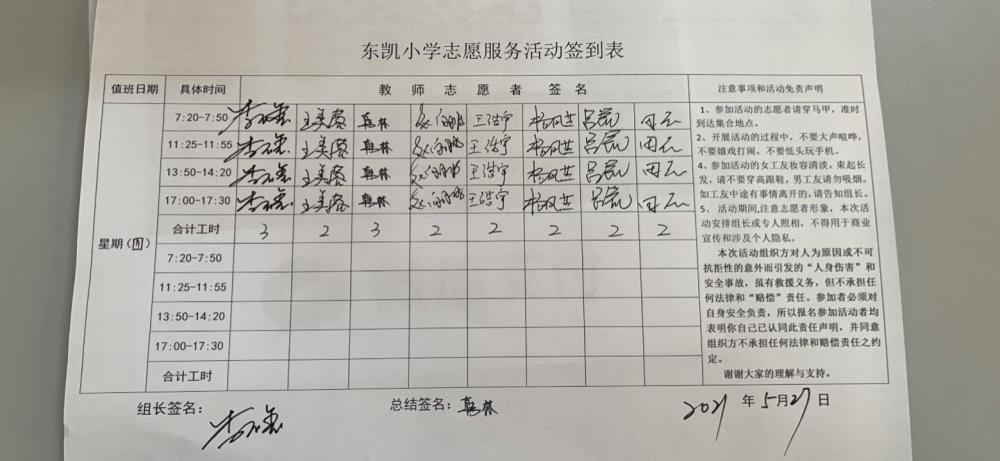 东凯小学志愿服务活动签到表
值班日期 具体时间 教师志愿者签名 注意事项和活动免责声明
7:20-7:50 王美蓉 韩林 王浩宇 吕宽 田云
11:25-11:55 王美蓉 韩林 王浩宇 吕宽 田云
13:50-14:20 王美蓉 韩林 王浩宇 吕宽 田云
17:00-17:30 王美蓉 韩林 王浩宇 吕宽 田云
合计工时 3 2 3 2 2 2 2 2
星期(四)
7:20-7:50
11:25-11:55
13:50-14:20
17:00-17:30
合计工时
1、参加活动的志愿者请穿马甲，准时
到达集合地点。
2、开展活动的过程中，不要大声喧哗，
不要嬉戏打闹，不要低头玩手机。
4、参加活动的女工友妆容清淡，束起长
发，请不要穿高跟鞋，男工友请勿吸烟。
如工友中途有事情离开的，请告知组长。
5、 活动期间,注意志愿者形象，本次活
动安排组长或专人照相，不得用于商业
宣传和涉及个人隐私。
本次活动组织方对人为原因或不可
抗拒性的意外而引发的“人身伤害”和
安全事故，虽有救援义务，但不承担任
何法律和“赔偿”责任。参加者必须对
自身安全负责，所以报名参加活动者均
表明你自己已认同此责任声明，并同意
组织方不承担任何法律和赔偿责任之约
定。
谢谢大家的理解与支持。
组长签名： 总结签名：韩林 2021 年 5 月 27 日